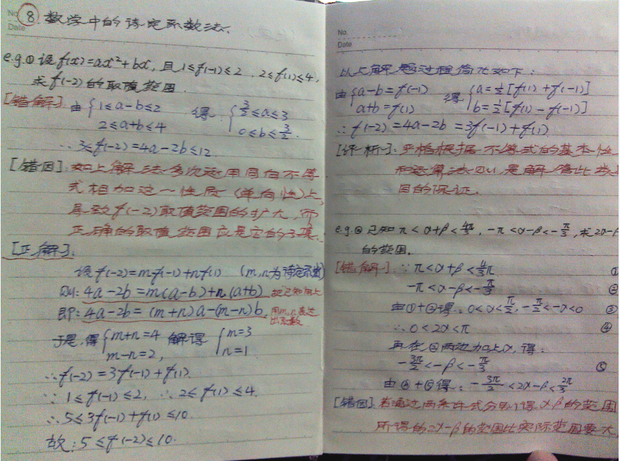 No
⑧ 数学中的待定系数法.
Date
e.g.① 设f(x)=ax²+bx, 且1≤f(-1)≤2, 2≤f(1)≤4,
求f(-2)的取值范围.
[错解]: 由{1≤a-b≤2 得 {3/2≤a≤3
2≤a+b≤4 0≤b≤3/2.
∴3≤f(-2)=4a-2b≤12.
[错因]: 如上解法多次运用同向不等
式相加这一性质(单向性)上,
导致f(-2)取值范围的扩大, 而
正确的取值范围应是它的子集.
[正解]:
设f(-2)=mf(-1)+nf(1) (m,n为待定系数)
则: 4a-2b=m(a-b)+n(a+b)
即: 4a-2b=(m+n)a-(m-n)b.
于是, 得{m+n=4 解得{m=3
m-n=2, n=1
∴f(-2)=3f(-1)+f(1)
∵1≤f(-1)≤2, ∴2≤f(1)≤4.
∴5≤3f(-1)+f(1)≤10.
故: 5≤f(-2)≤10.
No.
Date
以上解题过程简化如下:
由{a-b=f(-1) 得{a=½[f(1)+f(-1)]
a+b=f(1) b=½[f(1)-f(-1)]
∴f(-2)=4a-2b=3f(-1)+f(1)
[评析]: 严格根据不等式的基本性
和运算法则, 是解答此类
目的保证.
e.g.② 已知π<α+β<4π/3, -π<α-β<-π/3, 求2α-β
的范围.
[错解]: ∵π<α+β<4/3π ①
-π<α-β<-π/3 ②
由①+②得: 0<α<π/2, -π/2<-α<0 ③
∴0<2α<π ④
再在②两边加上α, 得:
-3π/2<-β<-π/3 ⑤
由④+⑤得: -3π/2<2α-β<2π/3
[错因]: 若通过两条件式分别得α、β的范围
所得的2α-β的范围比实际范围要大